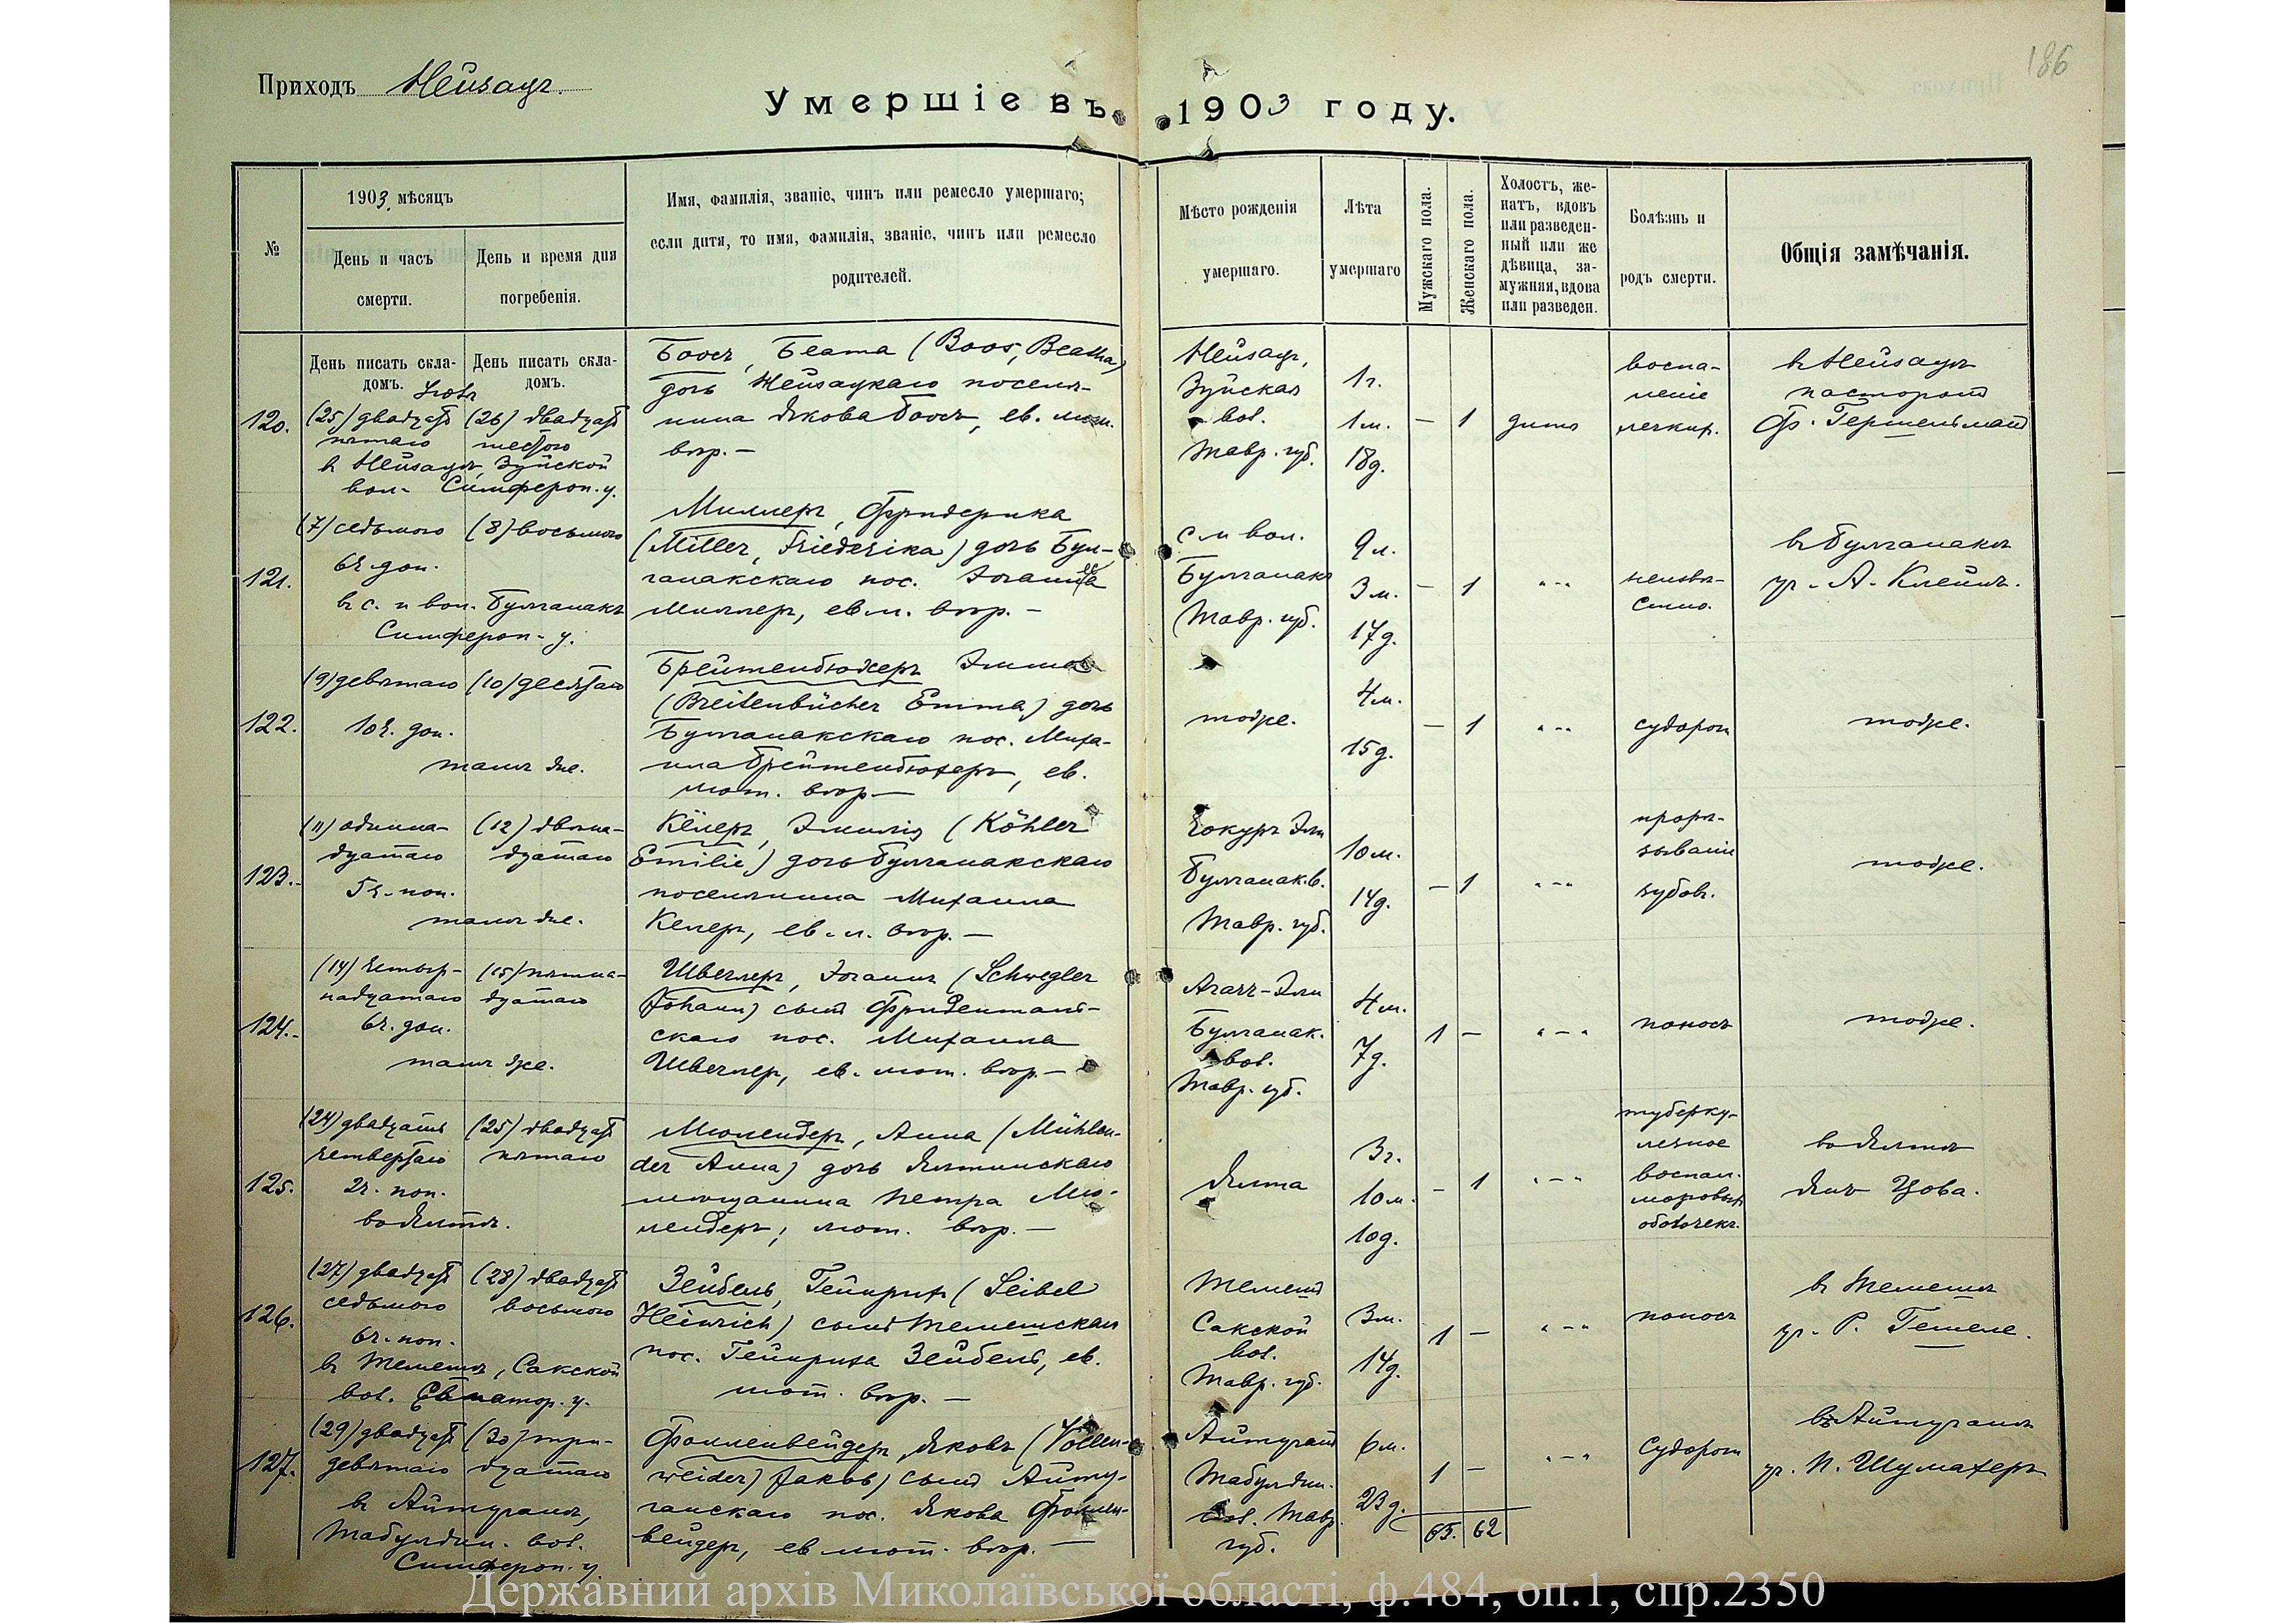 186
Приходъ Нейзацъ.
Умершіе въ 1903 году.
№
1903 мѣсяцъ
День и часъ смерти.
День и время дня погребенія.
Имя, фамилія, званіе, чинъ или ремесло умершаго;
если дитя, то имя, фамилія, званіе, чинъ или ремесло
родителей.
Мѣсто рожденія
умершаго.
Лѣта
умершаго
Мужскаго пола.
Женскаго пола.
Холостъ, же-
натъ, вдовъ
или разведен-
ный или же
дѣвица, за-
мужняя, вдова
или разведен.
Болѣзнь и
родъ смерти.
Общія замѣчанія.
День писать скла-
домъ.
День писать скла-
домъ.
120.
(25) двадцать
пятаго
въ Нейзацѣ, Зуйской
вол. Симфероп. у.
(26) двадцать
шестого
Боосъ, Беата (Boos, Beatha)
дочь Нейзацкаго поселя-
нина Якова Боосъ, ев. лют.
вѣр. —
Нейзацъ,
Зуйская
вол.
Тавр. губ.
1 г.
1 м.
18 д.
— 1
дитя
воспа-
леніе
легкихъ.
въ Нейзацѣ
пасторъ
Ф. Гершельманъ
121.
(7) седьмого
6 ч. доп.
въ с. и вол. Булганакъ
Симфероп. у.
(8) восьмого
Миллеръ, Фридерика
(Miller, Friederika) дочь Бул-
ганакскаго пос. Іоганнеса
Миллеръ, ев. л. вѣр. —
с. и вол.
Булганакъ
Тавр. губ.
9 л.
3 м.
17 д.
— 1
" — "
неизвѣ-
стно.
въ Булганакѣ
уч. А. Клейнъ.
122.
(9) девятаго
10 ч. доп.
тамъ же.
(10) десятаго
Брейтенбюхеръ Эмма
(Breitenbücher Emma) дочь
Булганакскаго пос. Миха-
ила Брейтенбюхеръ, ев.
лют. вѣр —
тоже.
4 м.
15 д.
— 1
" — "
судороги
тоже.
123.
(11) одинна-
дцатаго
5 ч. поп.
тамъ же.
(12) двѣна-
дцатаго
Кёлеръ, Эмилія (Köhler
Emilie) дочь Булганакскаго
поселянина Михаила
Келеръ, ев. л. вѣр. —
Чокуръ Эли
Булганак. в.
Тавр. губ.
10 м.
14 д.
— 1
" — "
прорѣ-
зываніе
зубовъ.
тоже.
124.
(14) четыр-
надцатаго
6 ч. доп.
тамъ же.
(15) пятна-
дцатаго
Швеглеръ, Іоганнъ (Schwegler
Johann) сынъ Фриденталь-
скаго пос. Михаила
Швеглеръ, ев. лют. вѣр. —
Агачъ-Эли
Булганак.
вол.
Тавр. губ.
4 м.
7 д.
1 —
" — "
поносъ
тоже.
125.
(24) двадцать
четвертаго
2 ч. поп.
въ Ялтѣ.
(25) двадцать
пятаго
Мюлендеръ, Анна (Mühlen-
der Anna) дочь Ялтинскаго
мѣщанина Петра Мю-
лендеръ, лют. вѣр. —
Ялта
3 г.
10 м.
10 д.
— 1
" — "
туберку-
лезное
воспал.
мозговыхъ
оболочекъ.
въ Ялтѣ
126.
(27) двадцать
седьмого
6 ч. поп.
въ Темешѣ, Сакской
вол. Евпатор. у.
(28) двадцать
восьмого
Зейбель, Гейнрихъ (Seibel
Heinrich) сынъ Темешскаго
пос. Гейнриха Зейбель, ев.
лют. вѣр. —
Темешъ
Сакской
вол.
Тавр. губ.
3 м.
14 д.
1 —
" — "
поносъ
въ Темешѣ
уч. Р. Гешеле.
127.
(29) двадцать
девятаго
въ Айтуганѣ,
Табулдин. вол.
Симфероп. у.
(30) три-
дцатаго
Фолленвейдеръ, Яковъ (Vollen-
weider) Jakob) сынъ Айту-
ганскаго пос. Якова Фоллен-
вейдеръ, ев. лют. вѣр. —
Айтуганъ
Табулдин.
вол. Тавр.
губ.
6 м.
23 д.
1 —
" — "
судороги
въ Айтуганѣ
уч. П. Шумахеръ
65. 62
Державний архів Миколаївської області, ф.484, оп.1, спр.2350